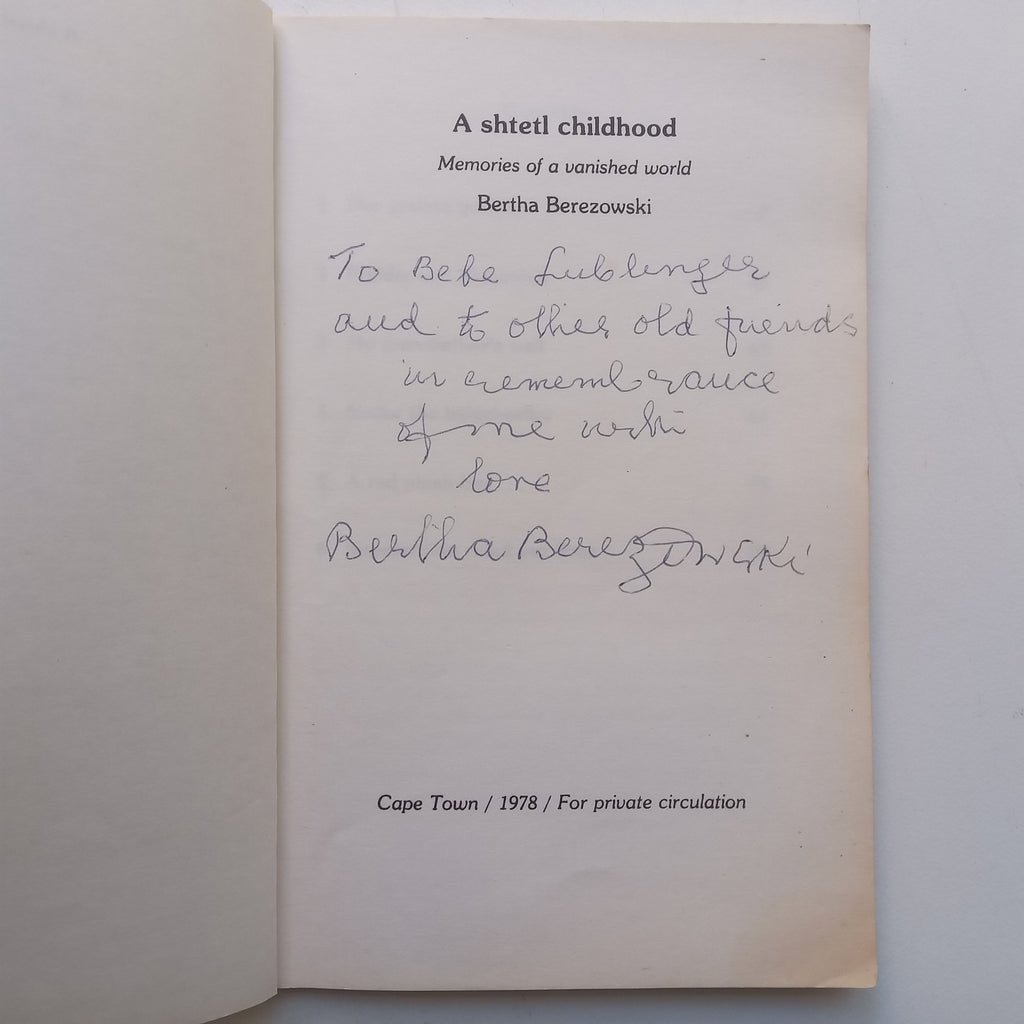 A shtetl childhood
Memories of a vanished world
Bertha Berezowski
To Bebe
and to other old friends
in remembrance
of me with
love
Bertha Berezowski
Cape Town / 1978 / For private circulation